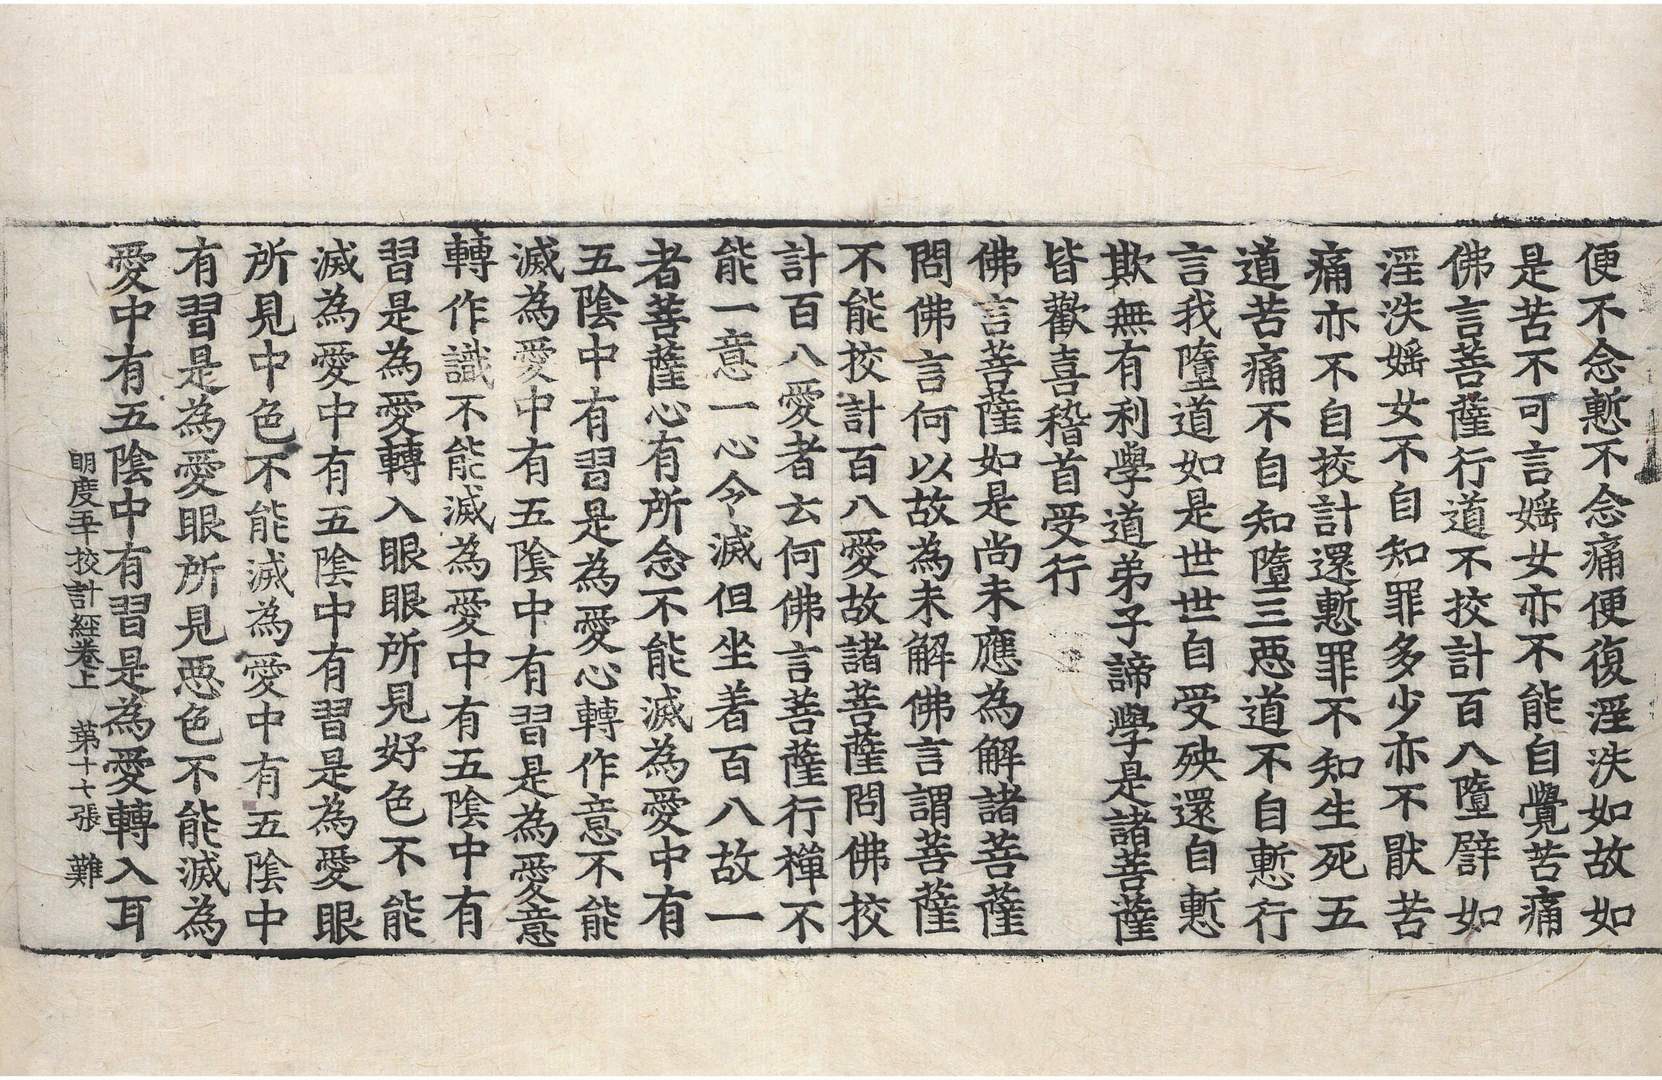 便不念慙不念痛便復淫泆如故如
是苦不可言婬女亦不能自覺苦痛
佛言菩薩行道不挍計百八墮譬如
淫泆婬女不自知罪多少亦不猒苦
痛亦不自挍計還慙罪不知生死五
道苦痛不自知墮三惡道不自慙行
言我墮道如是世世自受殃還自慙
欺無有利學道弟子諦學是諸菩薩
皆歡喜稽首受行
佛言菩薩如是尚未應為解諸菩薩
問佛言何以故為未解佛言謂菩薩
不能挍計百八愛故諸菩薩問佛挍
計百八愛者云何佛言菩薩行禪不
能一意一心令滅但坐着百八故一
者菩薩心有所念不能滅為愛中有
五陰中有習是為愛心轉作意不能
滅為愛中有五陰中有習是為愛意
轉作識不能滅為愛中有五陰中有
習是為愛轉入眼眼所見好色不能
滅為愛中有五陰中有習是為愛眼
所見中色不能滅為愛中有五陰中
有習是為愛眼所見惡色不能滅為
愛中有五陰中有習是為愛轉入耳
明度五十挍計經卷上　第十七張　難